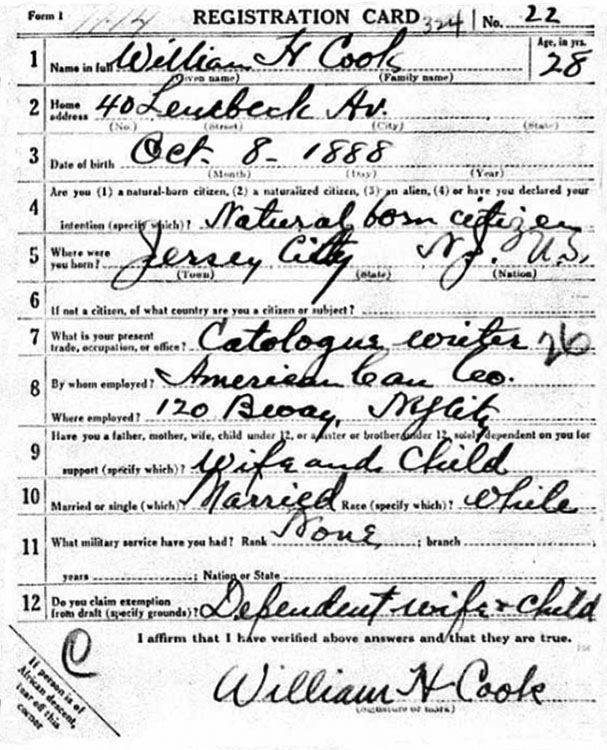 Form 1 REGISTRATION CARD 324 No. 22
1 Name in full William H Cook Age, in yrs. 28
(Given name) (Family name)
2 Home address 40 Av.
(No.) (Street) (City) (State)
3 Date of birth Oct. 8 - 1888
(Month) (Day) (Year)
4 Are you (1) a natural-born citizen, (2) a naturalized citizen, (3) an alien, (4) or have you declared your
intention (specify which)? Natural born citizen
5 Where were you born? Jersey City N.J. U.S.
(Town) (State) (Nation)
6 If not a citizen, of what country are you a citizen or subject?
7 What is your present trade, occupation, or office? Catologue writer 26
8 By whom employed? American Can Co.
Where employed? 120 Bway, NYCity
9 Have you a father, mother, wife, child under 12, or a sister or brother under 12, solely dependent on you for
support (specify which)? Wife and Child
10 Married or single (which)? Married Race (specify which)? White
11 What military service have you had? Rank None ; branch
years ; Nation or State
12 Do you claim exemption from draft (specify grounds)? Dependent wife + child
I affirm that I have verified above answers and that they are true.
C
If person is of
African descent,
tear off this
corner
William H Cook
(Signature or mark)